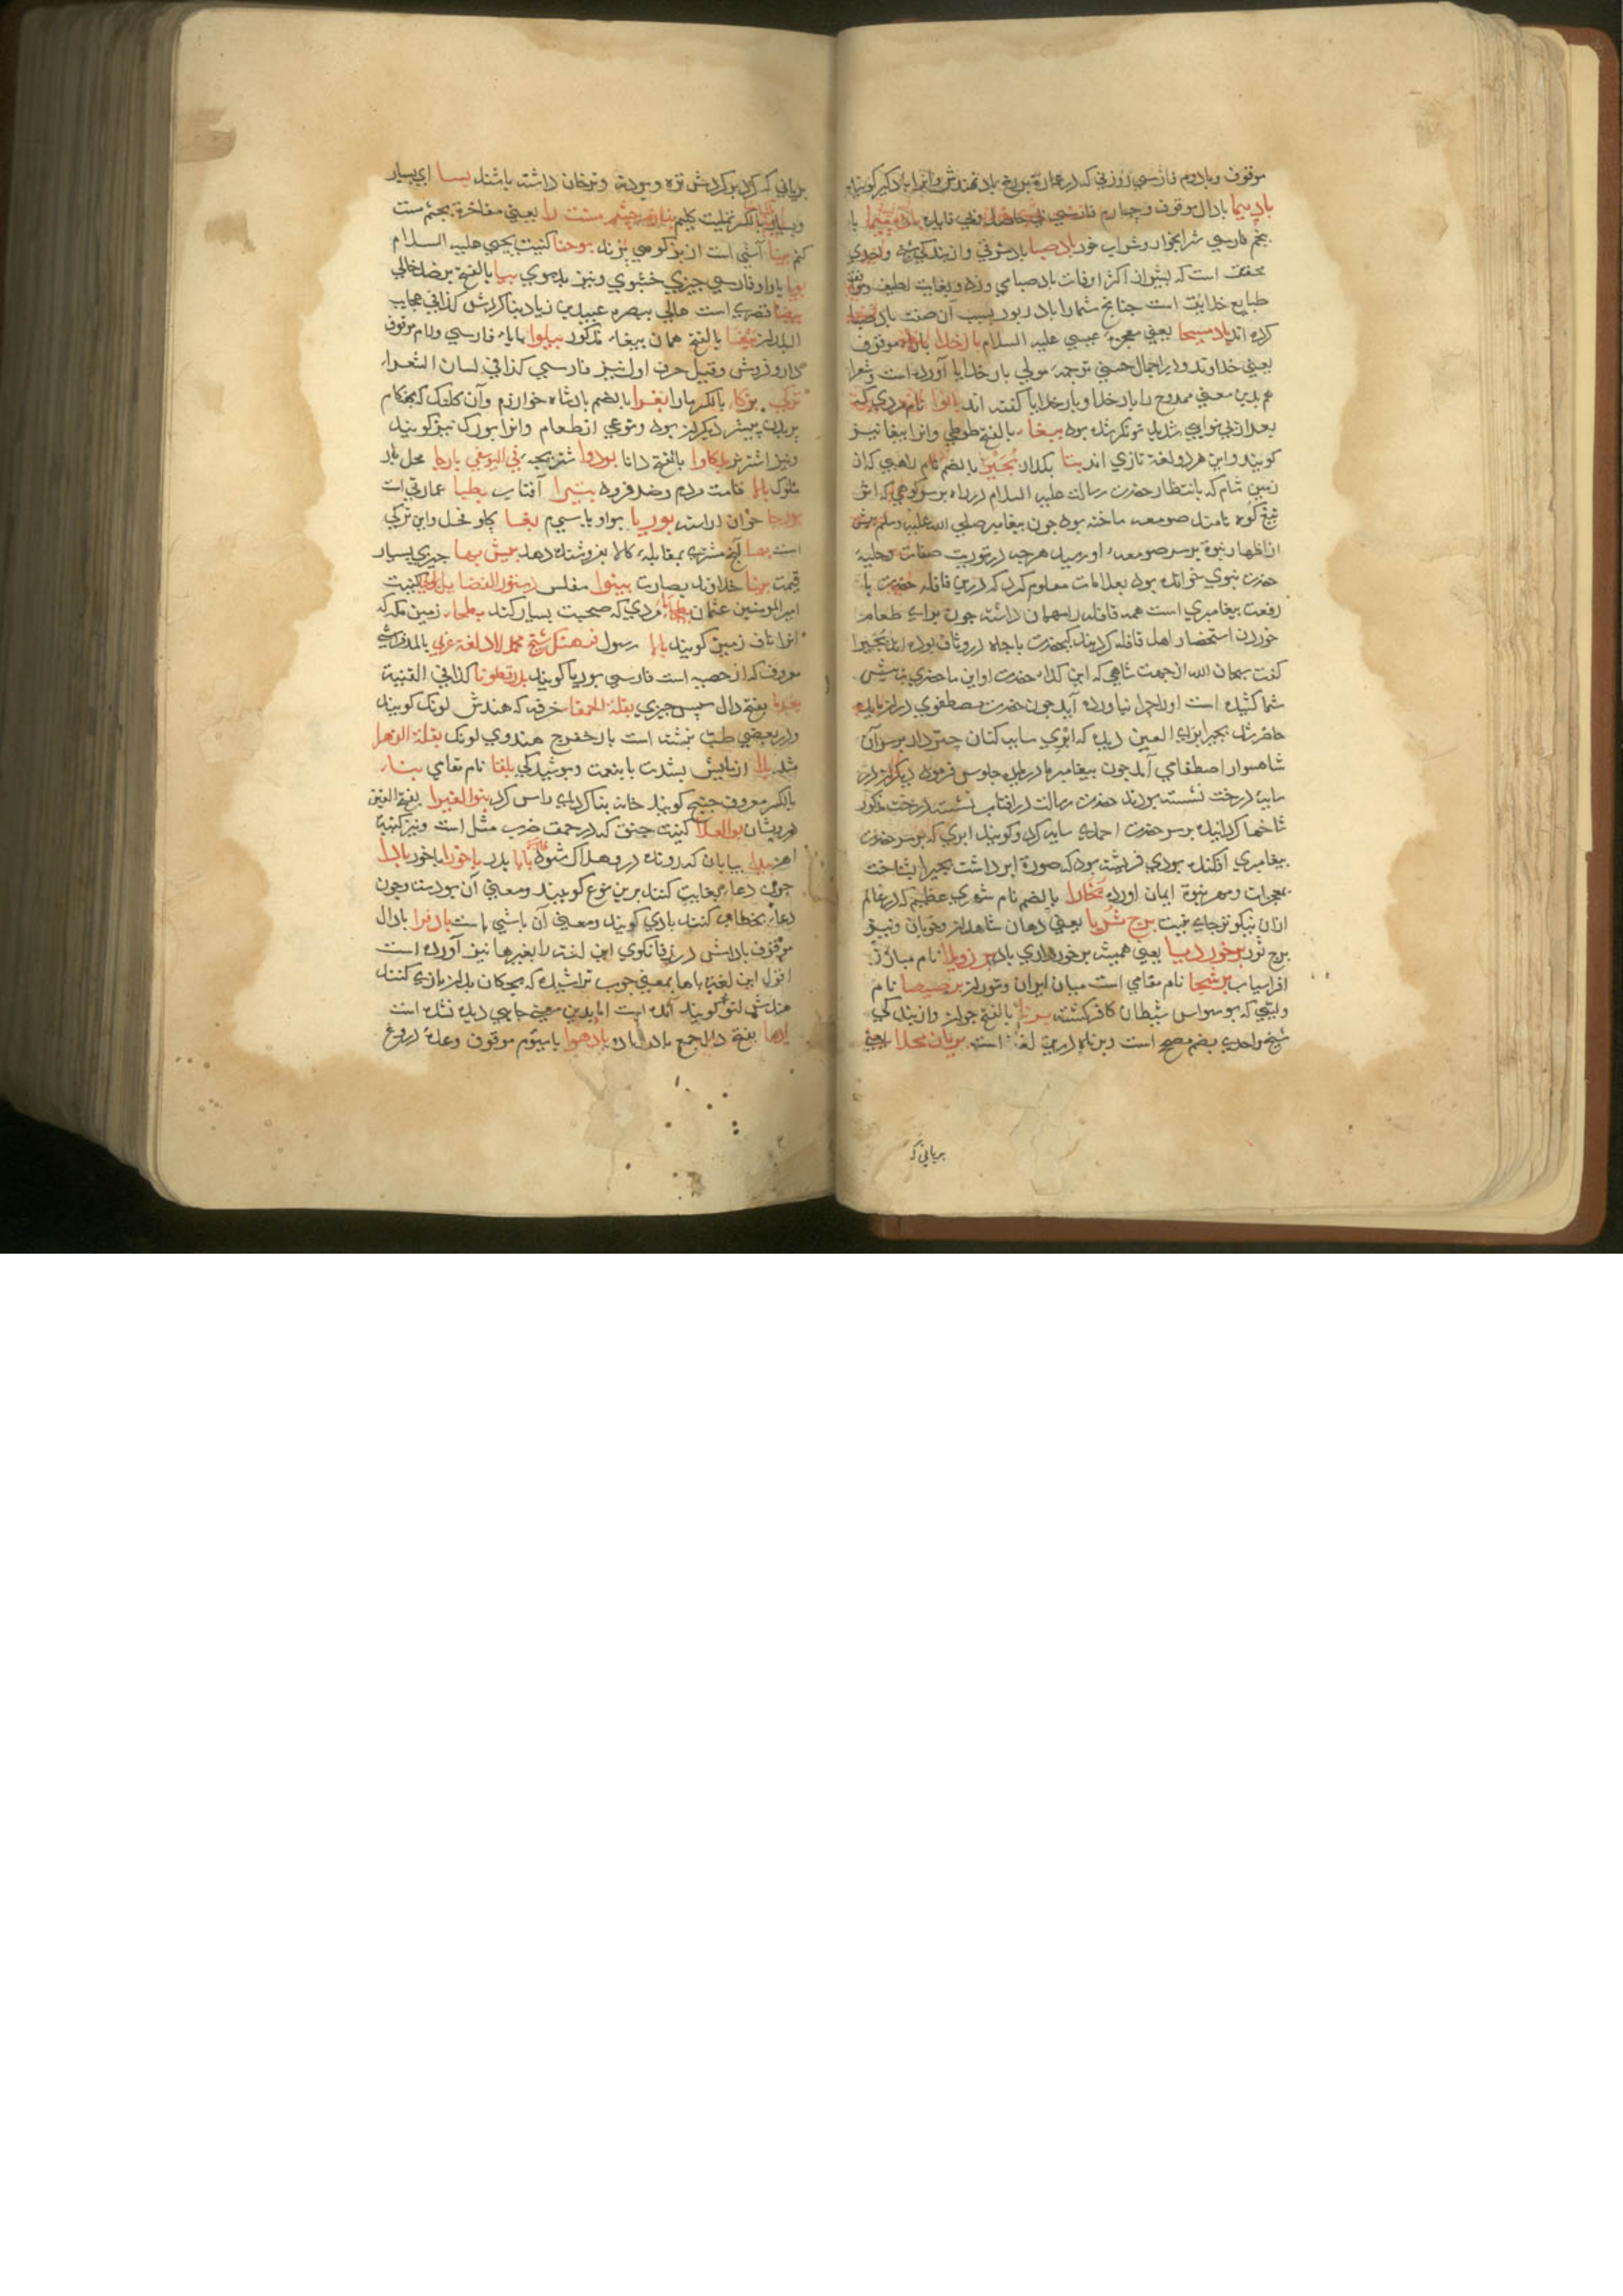 موقوف وبادوم فارسي روزني که در عمارة بر رخ باد نهندش وانرا بادکیر کویند
بادپیما بادال موقوف وچهارم فارسي بي حاصل وبي فایده باده پیما با
پنجم فارسي شرابخوار وشراب خور باد صبا باد شرقي واز بندکي شیخ واحدي
محقق است که بشیراز اکثر اوقات باد صبا مي وزد وبغایت لطیف
طبایع خلایق است چنانچ شما را باد ربود بسبب آن صفت باد صبا
کرده اند باد مسیحا یعني معجزه عیسي علیه السلام بار خدایا بارا موقوف
یعني خداوند ودر اجمال حسني ترجمه مولي بار خدایا آورده است وشعرا
هم بدین معني ممدوح را بار خدا وبار خدایا کفته اند بانوا نام مردي که
بعد از بي نوایي شدید تونکر شده بود ببغاء بالفتح طوطي وانرا ببغا نیز
کویند واین هر دو لغة تازي اند بتا بکذار بحیرا بالضم نام راهبي که در
زمین شام که بانتظار حضرت رسالت علیه السلام در راه بر سر کوهي که اش
تیغ کوه نامند صومعه ساخته بود چون پیغامبر صلي الله علیه وسلم پیش
از اظهار نبوة بر سر صومعه او رسید هر چه در توریت صفات وحلیه
حضرت نبوي خوانده بود بعلامات معلوم کرد که درین قافله حضرت با
رفعت پیغامبري است همه قافله را مهمان داشت چون براي طعام
خوردن استحضار اهل قافله کردند آنحضرت باجاه در وثاق بوده اند بحیرا
کفت سبحان الله از جهت شاهي که این کدا حضرت او این ما حضري پیش
شما کشیده است او را چرا نیاورده آید چون حضرت مصطفوي در ان مایده
حاضر شد بحیرا براي العین دیده که ابري سایه کنان چتر دار بر سر آن
شاهسوار اصطفاي آمد چون پیغامبر ما در مایده جلوس فرمود دیکران در
سایه درخت نشسته بودند حضرت رسالت در افتاب نشست درخت مذکور
شاخها کردانیده بر سر حضرت احمدي سایه کرد وکویند ابري که بر سر حضرت
پیغامبري افکنده بودي فریشته بود که صورة ابر داشت بحیرا بشناخت
بمعجزات ومهر نبوة ایمان آورد بخارا بالضم نام شهري عظیم که در عالم
ازان نیکوتر جاي نیست برج ثریا یعني دهان شاهدان وخوبان ونیز
برج ثور برخوردبیا یعني همیشه برخورداري باد برزویلا نام مبارز
افراسیاب برشحا نام مقامي است میان ایران وتوران برصیصا نام
ولیي که بوسواس شیطان کافر کشته برنا بالفتح جوان واز بندکي
شیخ واحدي بضم مصحح است وبرناه درین لغة است بریان محلا یعني
بریاني که
بریاني که کرد بر کردش تره وپودنه وترخان داشته باشند بسا اي بسیار
وبسیار بالکسر نملیت کلیم بنازم چشم مست را یعني مفاخرة بچشم مست
کنم بینا آشي است از بز کوهي پزند بوحنا کنیت یحیي علیه السلام
بویا باواو فارسي چیزي خشبوي ونیز بدبوي بها بالفتح بر ضد خالي
بیضا قصري است عالي ببصره عبیدبن زیاد بنا کردش کذا في عجایب
البلدان ببغا بالفتح همان ببغاء مذکور بیلوا بایاء فارسي ولام موقوف
داروفروش وقیل حرف اول نیز فارسي کذا في لسان الشعراء
ترکب برکاء بالکسر مارا بغرا بالضم بادشاه خوارزم وآن کلنک که بهنکام
پریدن پیشتر دیکران بود ونوعي از طعام وانرا بورک نیز کویند
ونیز اشتر نر بلکاوا بالفتح دانا بودوا شتربچه في الیوسفي بارها محل بار
ملوک بالا قامت مردم وضد فرود بتیرا آفتاب بطیا عمارتي است
بورجا خوان آراسته بوریا بواو یا سیوم بغا کاو فحل واین ترکي
است بها آنچ مشتري بمقابله کالا بفروشنده دهد بیش بها چیزي بسیار
قیمت بینا خداوند بصارت بینوا مفلس دستور الفضایل کنیت
امیر المومنین عثمان مردي که صحبت بسیار کند بطحاء زمین مکه که
انرا ناف زمین کویند بابا رسول فرهنک شیخ محمد لاد لغة عربي بالمد فراش
معروف که از حصیر است فارسي بوریا کویند بذرقطونا کذا في القنیة
بفتح دال سپس چیزي بقلة الحمقا خرفه که هندش لونک کویند
ودر بعضي طب نبشته است بادخفرج هندوي لونک بقلة الزهرا
شد بلا ازمایش بشدت یا بنعمت وپوشیدکي بلقا نام مقامي بناء
بالکسر معروف چنیج کویند خانه بنا کرد اي راس کرد بنوالغبرا بفتح الغین
درویشان بوالعلا کنیت جنق که در حمق ضرب مثل است ونیز کنیة
اهن بیدا بیابان که رونده درو هلاک شود بابا پدر باخورا باخور بادا
چون دعاء بغایب کنند برین نوع کویند ومعني آن بود است وچون
دعاء بخطاب کنند بادي کویند ومعني آن باشي است بادفرا بادال
موقوف پاداش در زفانکوي این لغت را بغیرها نیز آورده است
اقول این لغة باها بمعني چوب تراشیده که بچکان بدان بازي کنند
هندش لتو کویند آمده است اما بدین معني جایي دیده نشده است
بفتح دال جمع باد الباده بادهوا با سیوم موقوف وعدهٔ دروغ